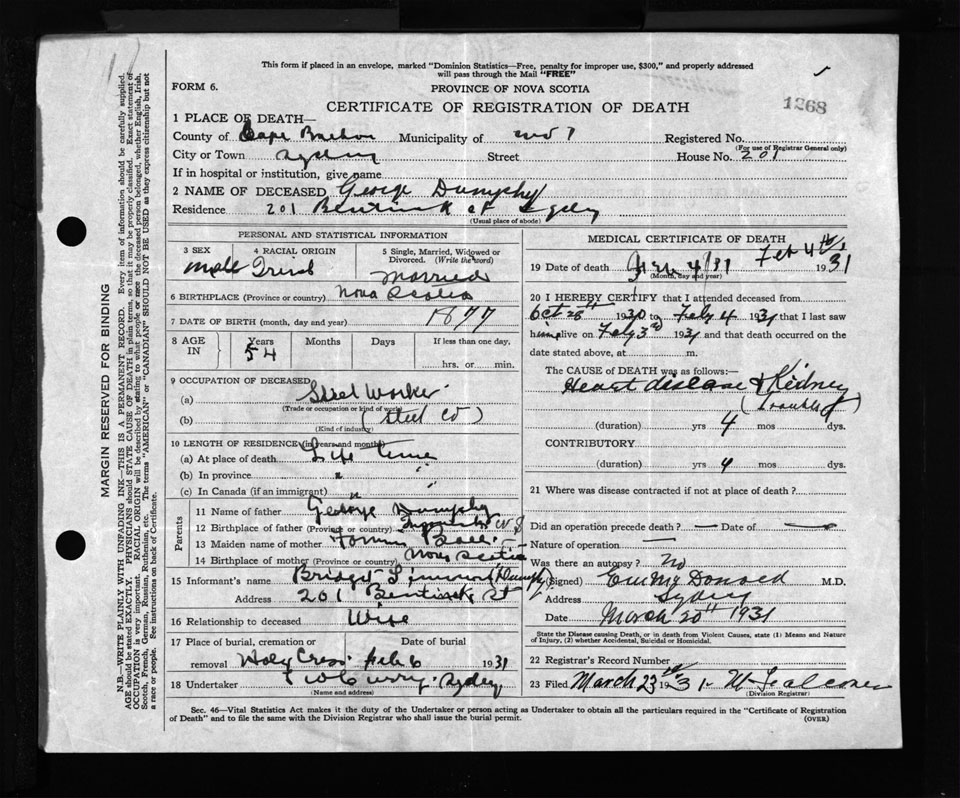 This form if placed in an envelope, marked "Dominion Statistics—Free, penalty for improper use, $300," and properly addressed
will pass through the Mail "FREE"
FORM 6.
PROVINCE OF NOVA SCOTIA
1268
CERTIFICATE OF REGISTRATION OF DEATH
1 PLACE OF DEATH—
County of Cape Breton Municipality of wd 7 Registered No.
(For use of Registrar General only)
City or Town Sydney Street House No. 201
If in hospital or institution, give name
2 NAME OF DECEASED George Dumphy
Residence 201 Bentinck st Sydney
(Usual place of abode)
PERSONAL AND STATISTICAL INFORMATION
3 SEX
4 RACIAL ORIGIN
5 Single, Married, Widowed or Divorced. (Write the word)
Male
Married
6 BIRTHPLACE (Province or country) Nova Scotia
7 DATE OF BIRTH (month, day and year) 1877
8 AGE IN Years Months Days If less than one day,
54
hrs. or min.
9 OCCUPATION OF DECEASED
(a) Steel Worker
(Trade or occupation or kind of work)
(b) (Steel Co)
(Kind of industry)
10 LENGTH OF RESIDENCE (in years and months)
(a) At place of death Life Time
(b) In province " "
(c) In Canada (if an immigrant) " "
Parents
11 Name of father George Dumphy
12 Birthplace of father (Province or country)
13 Maiden name of mother
14 Birthplace of mother (Province or country) Nova Scotia
15 Informant's name Bridget (Dumphy)
Address 201 Bentinck St
16 Relationship to deceased Wife
17 Place of burial, cremation or removal Date of burial
Holy Cross Feb 6 1931
18 Undertaker Curry Sydney
(Name and address)
MEDICAL CERTIFICATE OF DEATH
19 Date of death 4/31 Feb 4th 1931
(Month, day and year)
20 I HEREBY CERTIFY that I attended deceased from
Oct 28th 1930 to Feby 4 1931 that I last saw
him alive on Feby 3rd 1931 and that death occurred on the
date stated above, at m.
The CAUSE of DEATH was as follows:—
Heart disease & Kidney
(trouble)
(duration) yrs 4 mos dys.
CONTRIBUTORY
(duration) yrs 4 mos dys.
21 Where was disease contracted if not at place of death?
Did an operation precede death? — Date of —
Nature of operation —
Was there an autopsy? No
(Signed) McDonald M.D.
Address Sydney
Date March 20th 1931
State the Disease causing Death, or in death from Violent Causes, state (1) Means and Nature
of Injury, (2) whether Accidental, Suicidal or Homicidal.
22 Registrar's Record Number
23 Filed March 23rd 1931
(Division Registrar)
Sec. 46—Vital Statistics Act makes it the duty of the Undertaker or person acting as Undertaker to obtain all the particulars required in the "Certificate of Registration
of Death" and to file the same with the Division Registrar who shall issue the burial permit.
(OVER)
MARGIN RESERVED FOR BINDING
N.B.—WRITE PLAINLY WITH UNFADING INK—THIS IS A PERMANENT RECORD. Every item of information should be carefully supplied.
AGE should be stated EXACTLY. PHYSICIANS should STATE CAUSE OF DEATH in plain terms, so that it may be properly classified. Exact statement of
OCCUPATION is very important. RACIAL ORIGIN will be described by stating to what people or race the deceased person belonged, whether English, Irish,
Scotch, French, German, Russian, Ruthenian, etc. The terms "AMERICAN" or "CANADIAN" SHOULD NOT BE USED as they express citizenship but not
a race or people. See instructions on back of Certificate.